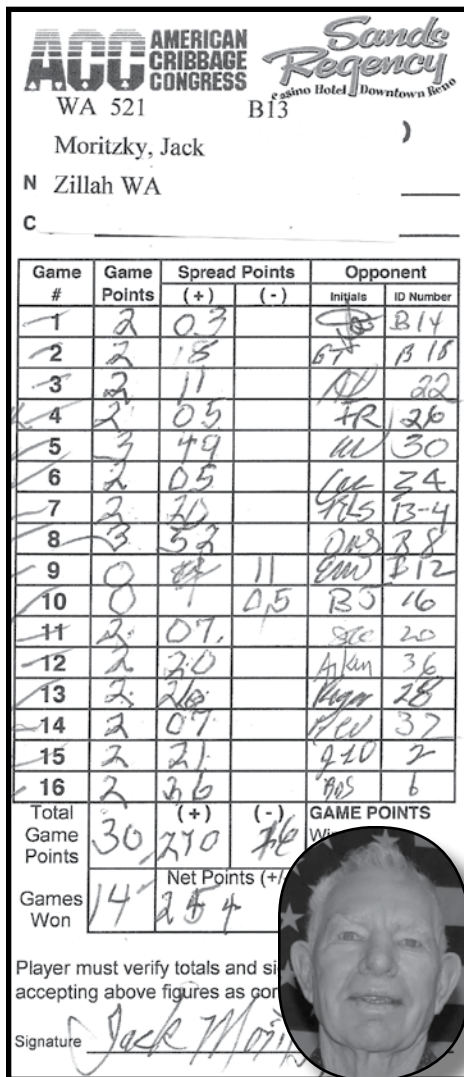 ACC AMERICAN CRIBBAGE CONGRESS
Sands Regency
Casino Hotel Downtown Reno
WA 521 B13
)
Moritzky, Jack
N Zillah WA
C
Game # Game Points Spread Points (+) (-) Opponent Initials ID Number
1 2 03 B14
2 2 18 B 18
3 2 11 22
4 2 05 FR 26
5 3 49 30
6 2 05 34
7 2 20 RLS 13-4
8 3 52 B8
9 0 11 B12
10 0 05 BJ 16
11 2 07 20
12 2 20 36
13 2 26 28
14 2 07 37
15 2 21 2
16 2 36 6
Total Game Points 30 (+) 270 (-) 16 GAME POINTS
Games Won 14 Net Points (+/ 254
Player must verify totals and si
accepting above figures as cor
Signature Jack Mori